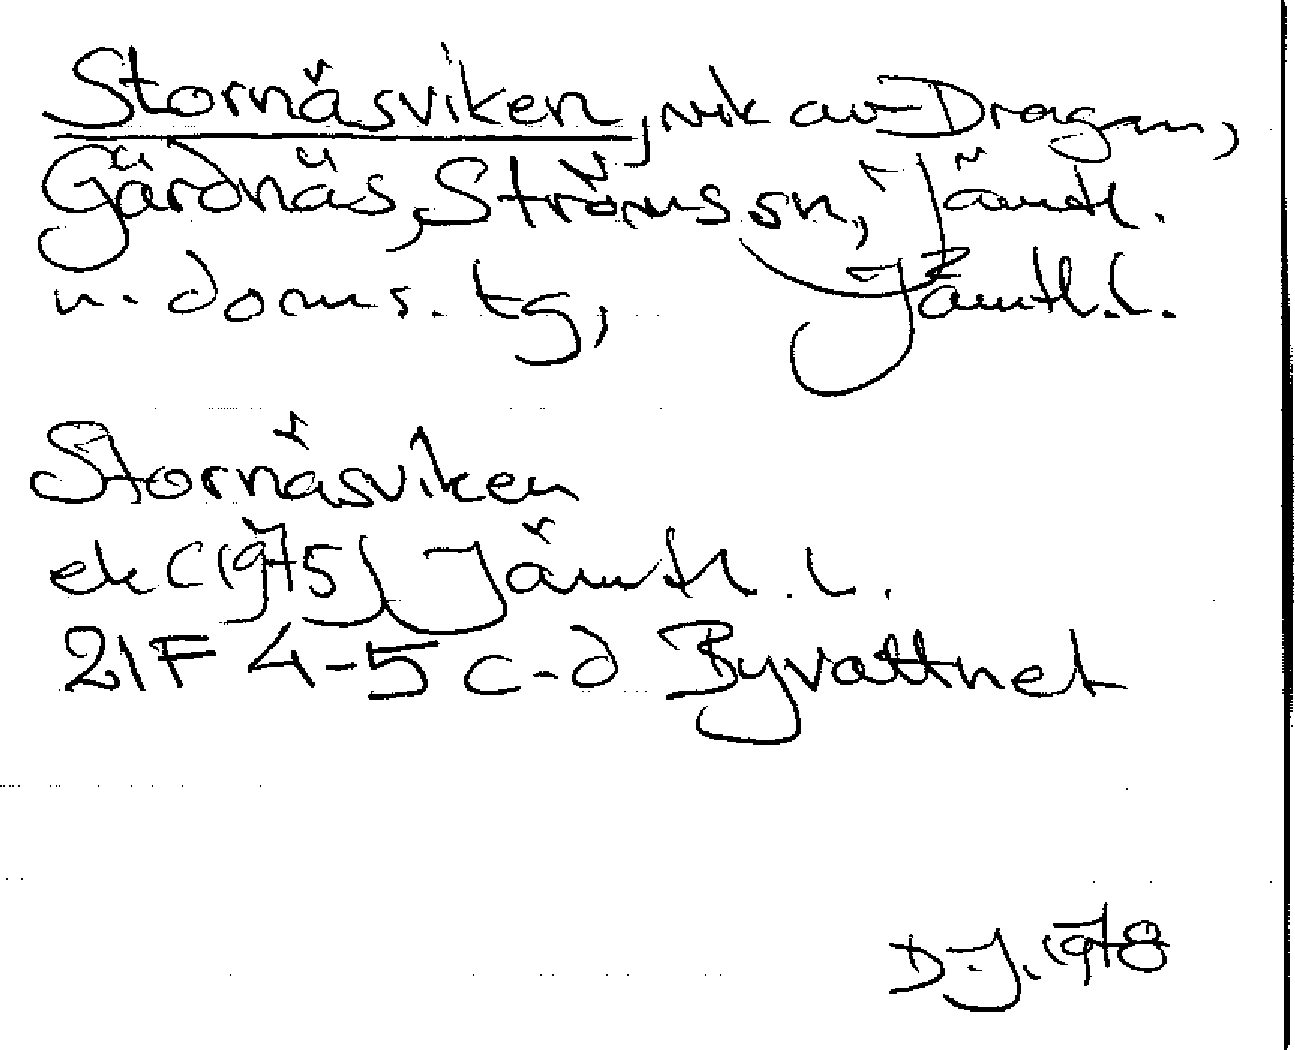 Stornäsviken, vik av Dragan,
Gärdnäs, Ströms sn, Jämtl.
n. doms. tg, Jämtl. l.
Stornäsviken
ek (1975) Jämtl. l.
21F 4-5 c-d Byvattnet
D.J. 1978